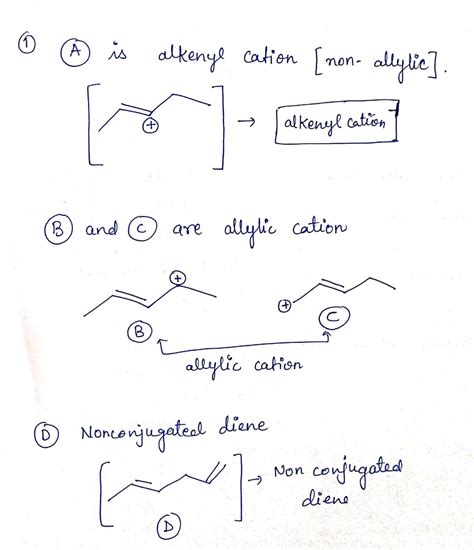 ① Ⓐ is alkenyl cation [non-allylic].
⊕ → alkenyl cation
Ⓑ and Ⓒ are allylic cation
⊕ ⊕
Ⓑ Ⓒ
allylic cation
Ⓓ Nonconjugated diene
→ Non conjugated
diene
Ⓓ